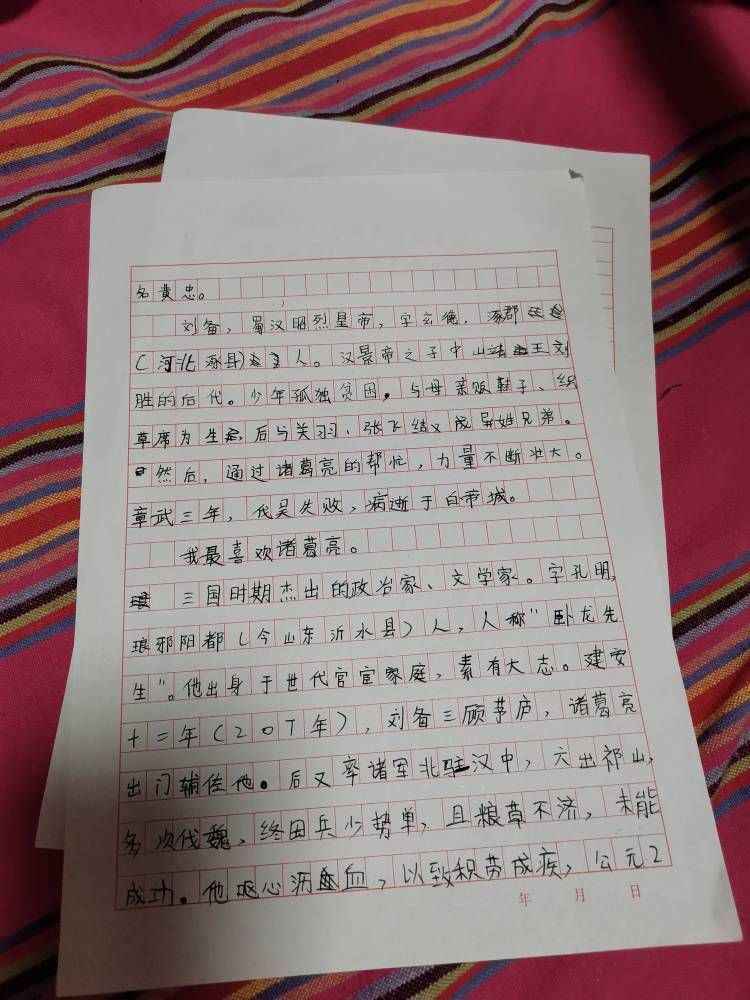 名黄忠。
刘备，蜀汉昭烈皇帝，字玄德，涿郡
（河北涿县）人。汉景帝之子中山靖王刘
胜的后代。少年孤独贫困，与母亲贩鞋子、织
草席为生，后与关羽、张飞结义成异姓兄弟。
然后，通过诸葛亮的帮忙，力量不断壮大。
章武三年，伐吴失败，病逝于白帝城。
我最喜欢诸葛亮。
三国时期杰出的政治家、文学家。字孔明，
琅邪阳都（今山东沂水县）人，人称“卧龙先
生”。他出身于世代官宦家庭，素有大志。建安
十二年（207年），刘备三顾茅庐，诸葛亮
出门辅佐他。后又率诸军北驻汉中，六出祁山，
多次伐魏，终因兵少势单，且粮草不济，未能
成功。他呕心沥血，以致积劳成疾，公元2
年 月 日